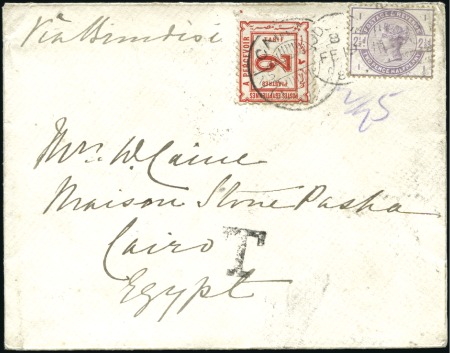 Via Brindisi
A PERCEVOIR
2
PIASTRES
POSTES EGYPTIENNES
2½
FE
1/25
Mrs. W. Caine
Maison Stone Pasha
Cairo
T
Egypt